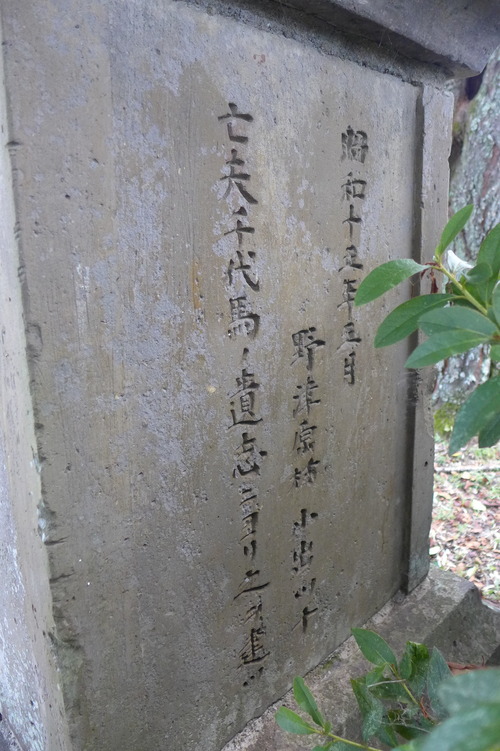 昭和十五年五月
野津原村 小出以十
亡夫千代馬ノ遺志ニヨリ之ヲ建ツ